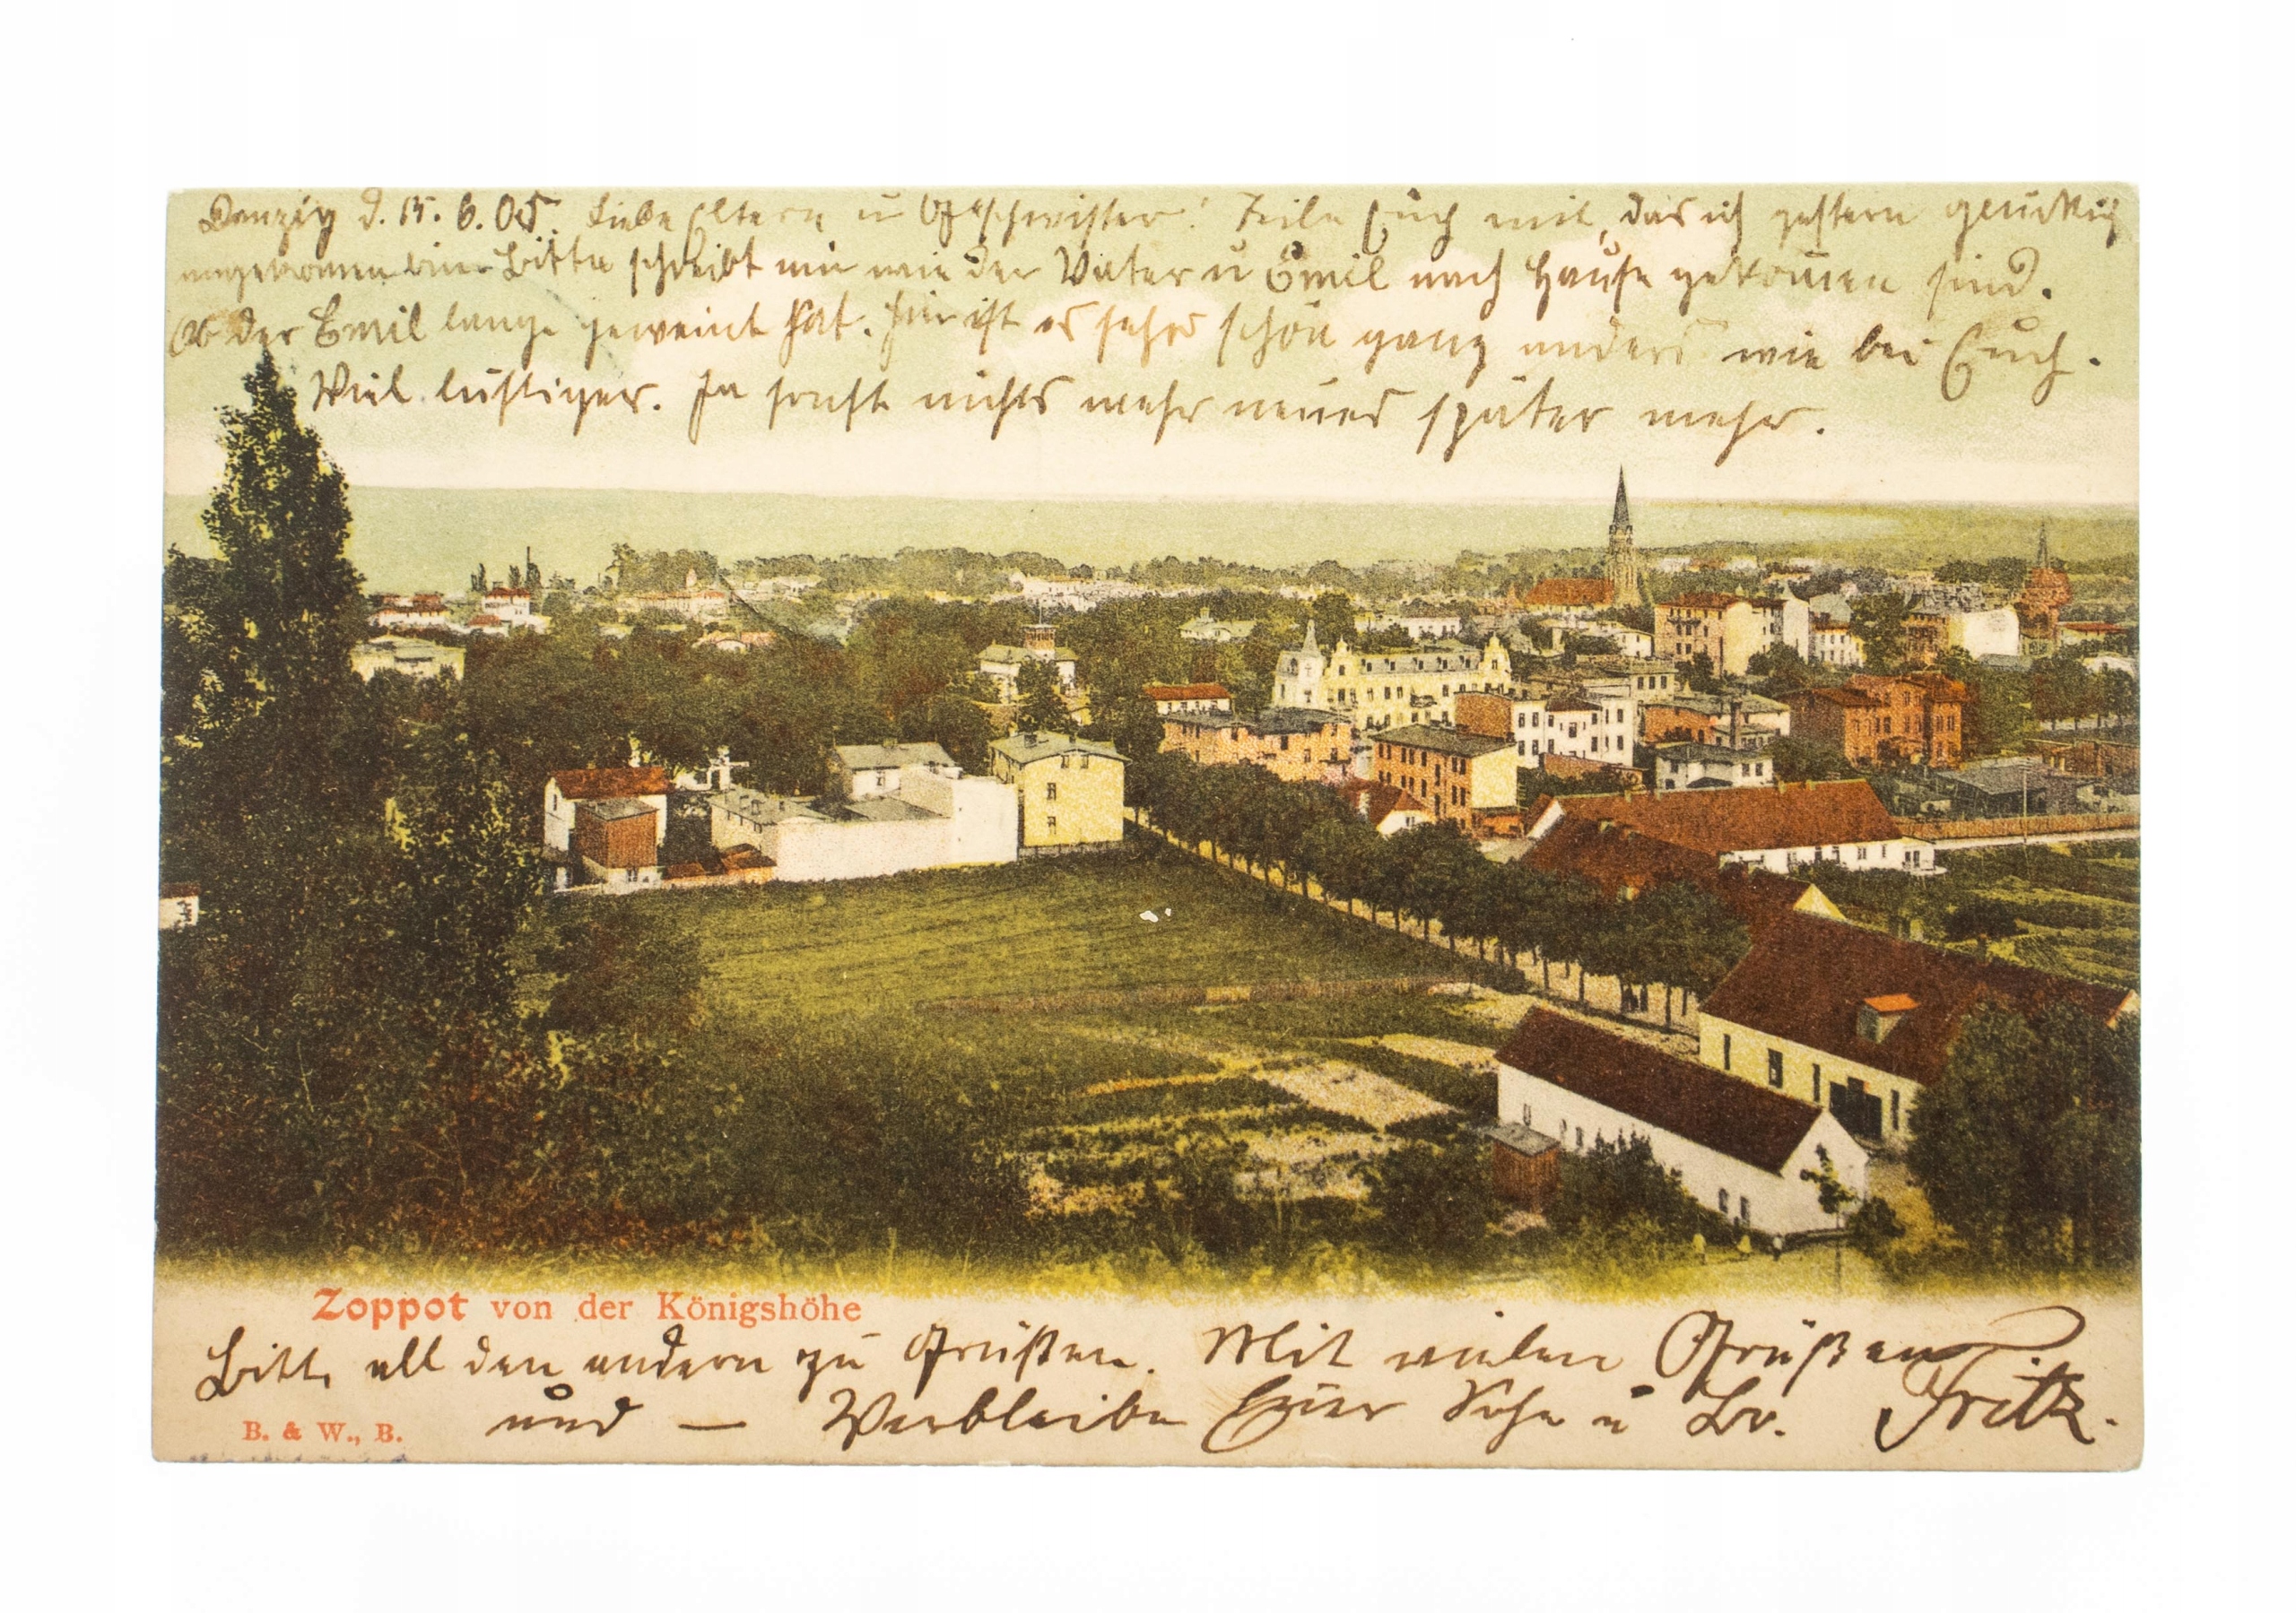 Danzig d. 15. 6. 05. Liebe Eltern u Geschwister! Teile Euch mit, das ich gestern glücklich
angekomen bin. Bitte schreibt mir wie der Vater u Emil nach Hause gekomen sind.
Ob der Emil lange geweint hat. Hier ist es sehr schön ganz anders wie bei Euch.
Viel lustiger. Ja sonst nichts mehr neues später mehr.
Zoppot von der Königshöhe
Bitte all den andern zu Grüßen. Mit vielen Grüßen
und — Verbleibe Euer Sohn u Br. Fritz.
B. & W., B.